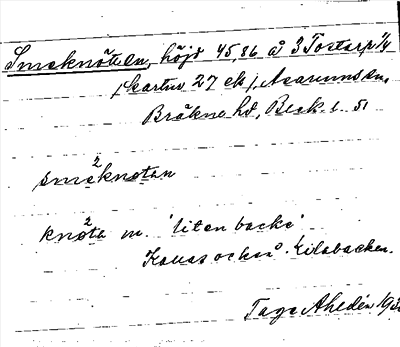 Smeknöten, höjd 45,86 å 3 Tostarp 1/4
(kartni 27 ek), Asarums sn,
Bräkne hd, Blek. l. 51
2
smeknotan
2
knøta m. 'liten backe'
Kallas också Kilabacken.
Tage Ahldén 193